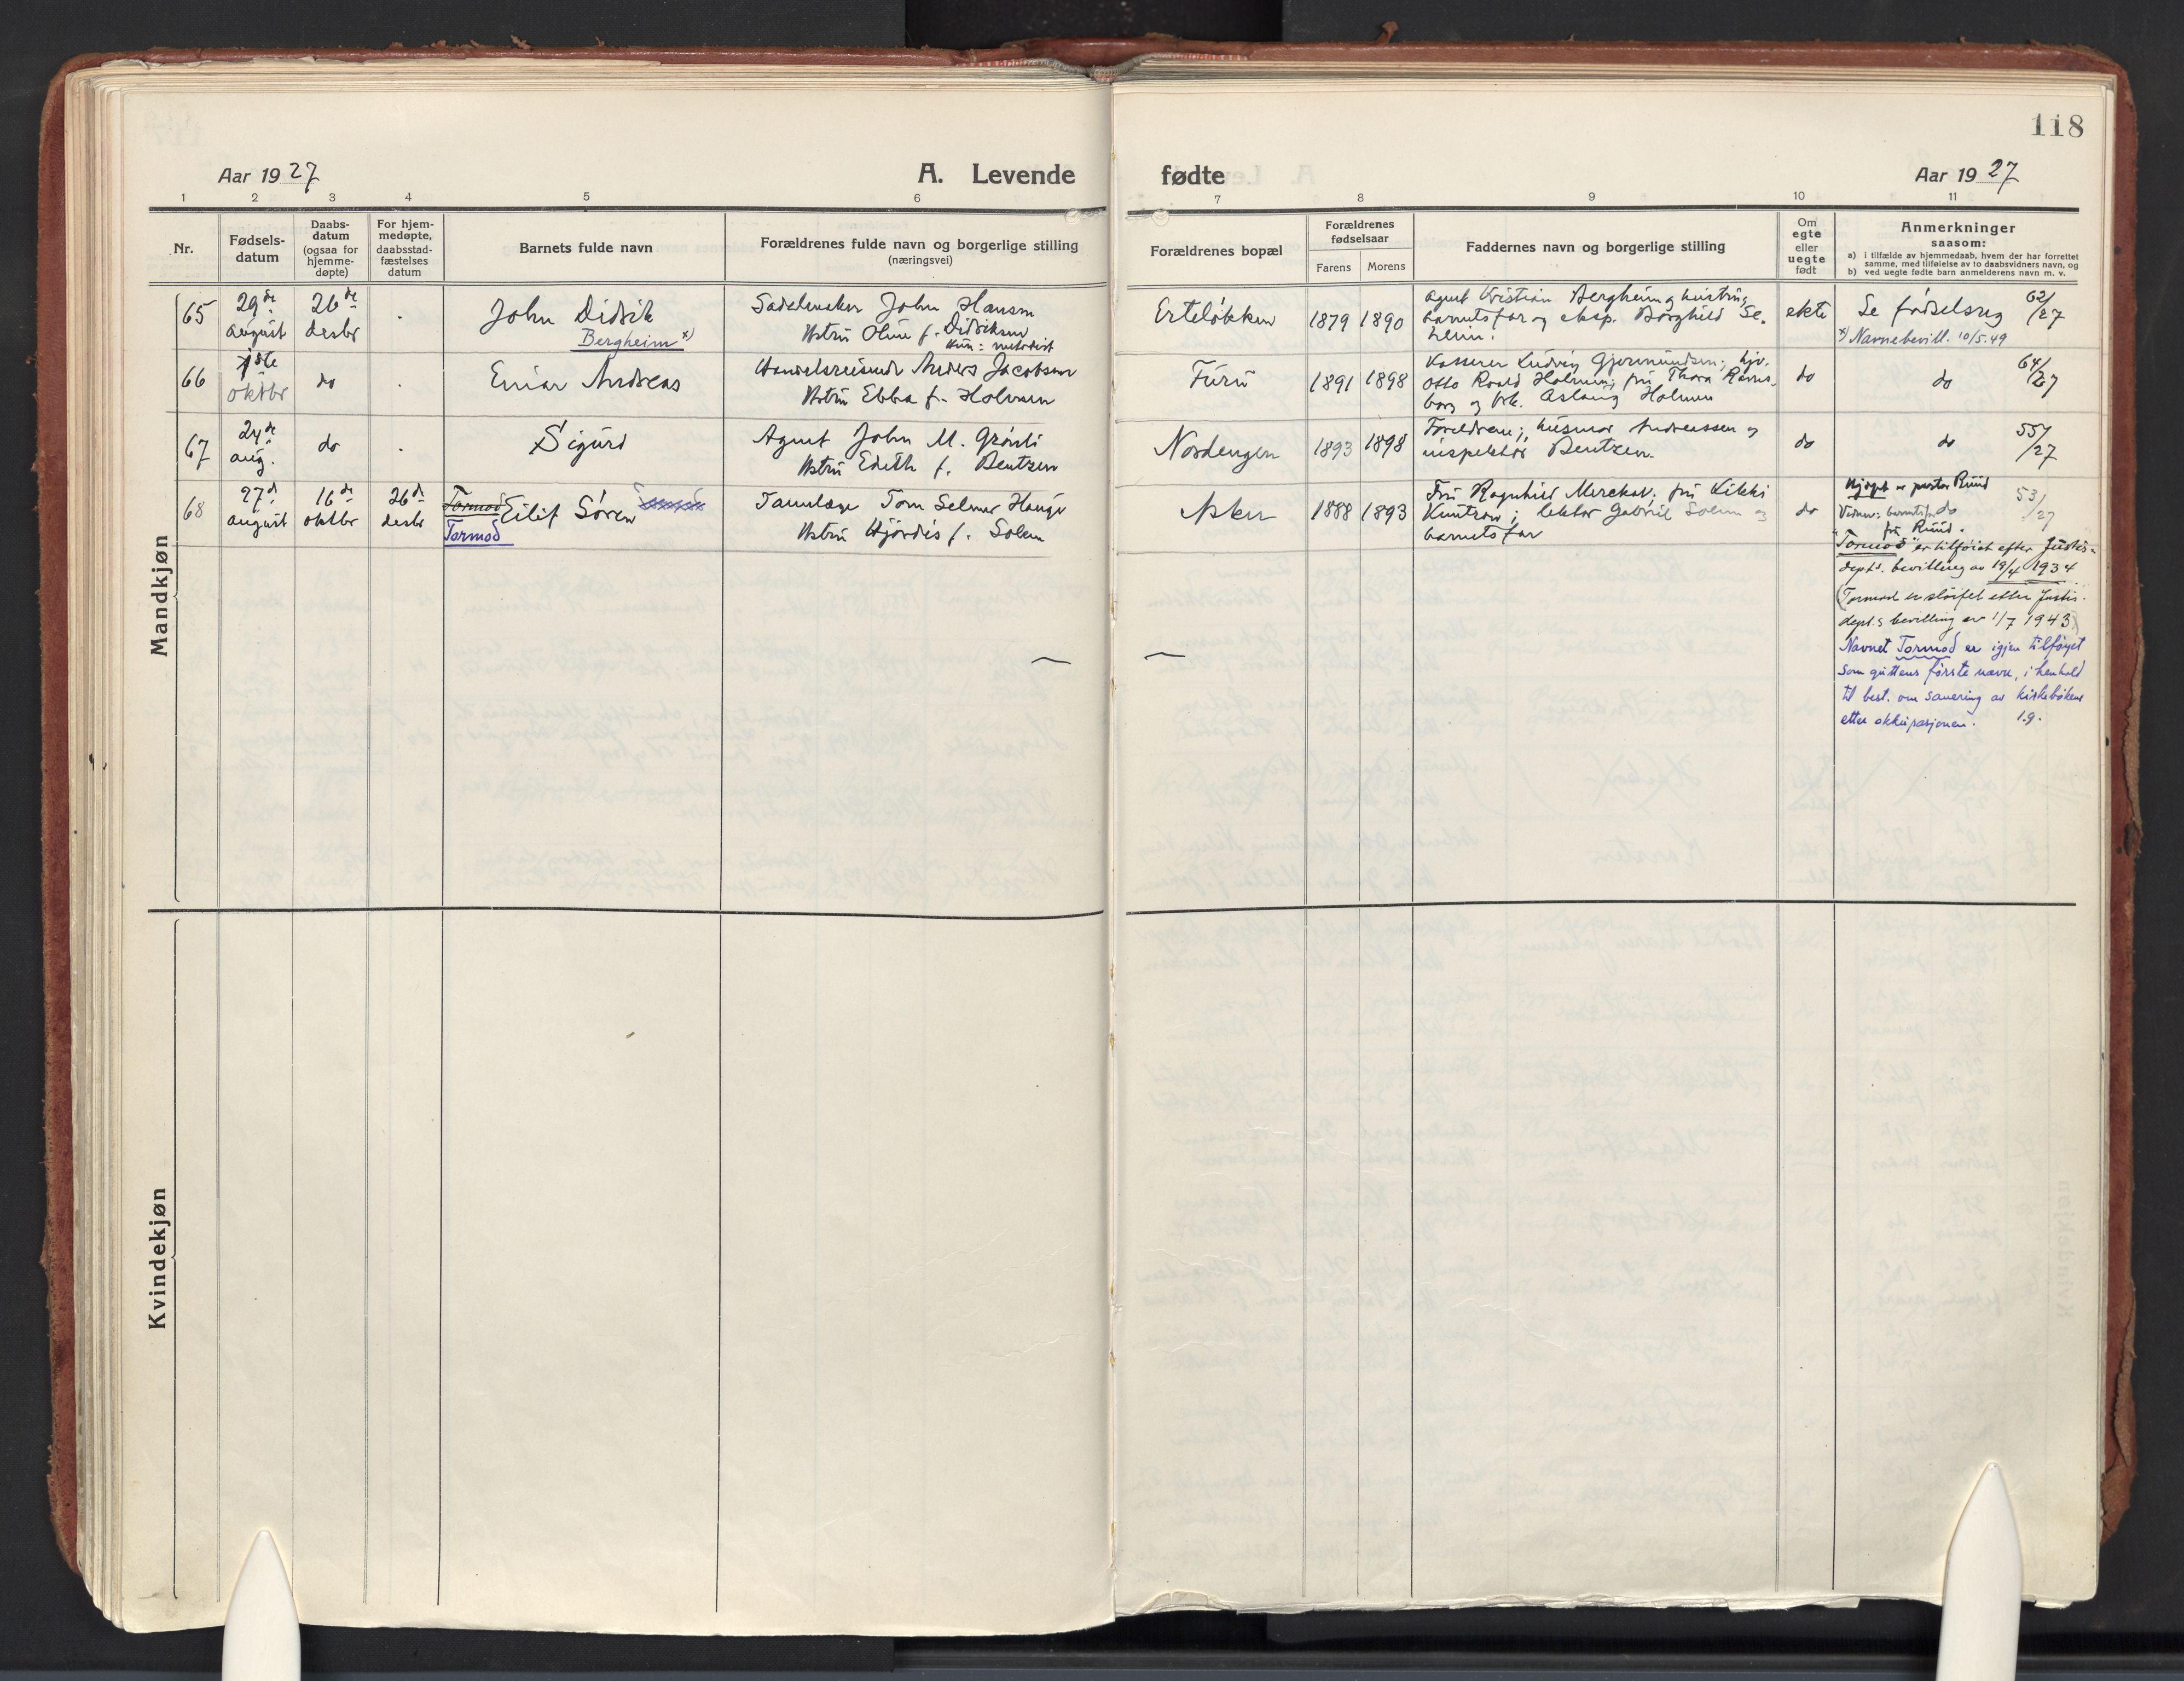 118
Aar 1927
A. Levende
fødte
Aar 1927
1 2 3 4 5 6 7 8 9 10 11
Nr.
Fødsels-
datum
Daabs-
datum
(ogsaa for
hjemme-
døpte)
For hjem-
medøpte,
daabsstad-
fæstelses
datum
Barnets fulde navn
Forældrenes fulde navn og borgerlige stilling
(næringsvei)
Forældrenes bopæl
Forældrenes
fødselsaar
Farens Morens
Faddernes navn og borgerlige stilling
Om
egte
eller
uegte
født
Anmerkninger
saasom:
a) i tilfælde av hjemmedaab, hvem der har forrettet
samme, med tilføielse av to daabsvidners navn, og
b) ved uegte fødte barn anmelderens navn m. v.
Mandkjøn
65
29de
august
26de
desbr
.
John Didrik
Bergheim x)
John Hansen
Hstru Oline f. Didriksen
kun: metodist
Erteløkken
1879 1890
agent Kristian Bergheim og hustru,
barnets far og eksp. Borghild
ekte
Se fødselsreg 62/27
x) Navnebevill. 10/5.49
66
1ste
oktbr
do
.
Einar Andreas
Handelsreisende Anders Jacobsen
Hstru Ebba f. Holmen
Furu
1891 1898
Kasserer Ludvig Gjermundsen;
Otto Roald Holmen; fru Thora
borg og frk. Aslaug Holmen
do
do 64/27
67
24de
aug.
do
.
Sigurd
Agent John M. Grønli
Hstru Edith f. Bentzen
Nordengen
1893 1898
Foreldrene; husmor Andreassen og
inspektør Bentzen.
do
do 55/27
68
27de
august
16de
oktbr
26de
desbr
Tormod Eilif Søren
Tormod
Tannlæge Tom Selmer Hauge
Hstru Hjørdis f. Solem
Asker
1888 1893
Fru Ragnhild fru Kikki
lektor Gabriel Solem og
barnets far
do
Hjdøpt av pastor Ruud
Vidner: barnets far do 53/27
fru Ruud.
"Tormod" er tilføiet efter Justis-
dept's. bevilling av 19/4 1934
(Tormod er sløifet etter Justis-
dept.s bevilling av 1/7 1943)
Navnet Tormod er igjen tilføyet
som guttens første navn, i henhold
til best. om sanering av kirkebøkene
etter okkupasjonen. 1.9.
Kvindekjøn